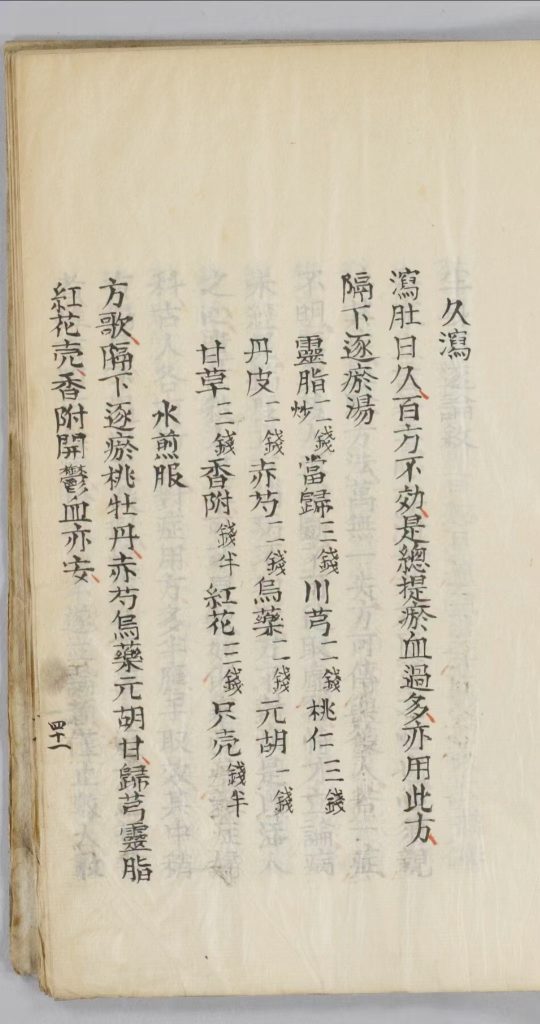 久瀉
瀉肚日久百方不効是總提瘀血過多亦用此方
隔下逐瘀湯
靈脂二錢炒當歸三錢川芎二錢桃仁三錢
丹皮二錢赤芍二錢烏藥二錢元胡一錢
甘草三錢香附錢半紅花三錢只壳錢半
水煎服
方歌隔下逐瘀桃牡丹赤芍烏藥元胡甘歸芎靈脂
紅花壳香附開鬱血亦安
四十二